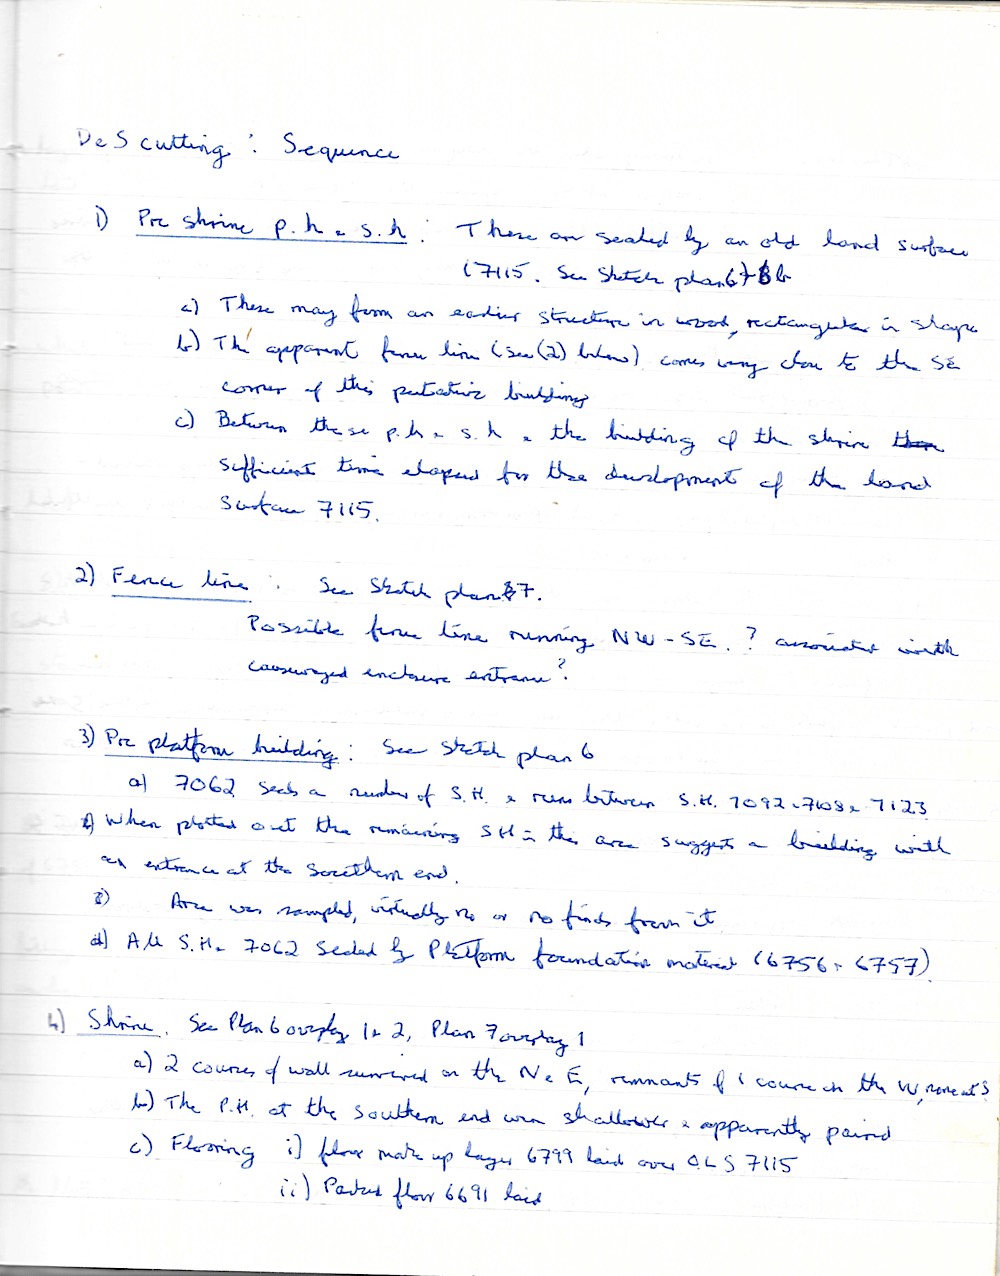 De S cutting : Sequence
1) Pre shrine p.h & s.h : These are sealed by an old land surface
(7115. See Sketch plan 6
a) These may form an earlier structure in wood, rectangular in shape
b) The apparent fence line (see (2) below) comes very close to the SE
corner of this putative building
c) Between these p.h & s.h & the building of the shrine
sufficient time elapsed for the development of the land
surface 7115.
2) Fence line : See Sketch plan 7.
Possible fence line running NW - SE. ? associated with
causewayed enclosure entrance ?
3) Pre platform building : See Sketch plan 6
a) 7062 seals a number of S.H. & runs between S.H. 7092, 7108 & 7123
b) When plotted out the remaining SH in this area suggest a building with
an entrance at the southern end.
c) Area was sampled, virtually no or no finds from it
d) All S.H. & 7062 sealed by Platform foundation material (6756 & 6757)
4) Shrine. See Plan 6 overlay 1 & 2, Plan 7 overlay 1
a) 2 courses of wall survived on the N & E, remnants of 1 course on the W, none at S
b) The P.H. at the southern end were shallower & apparently paired
c) Flooring i) floor make up layer 6799 laid over OLS 7115
ii) Packed floor 6691 laid